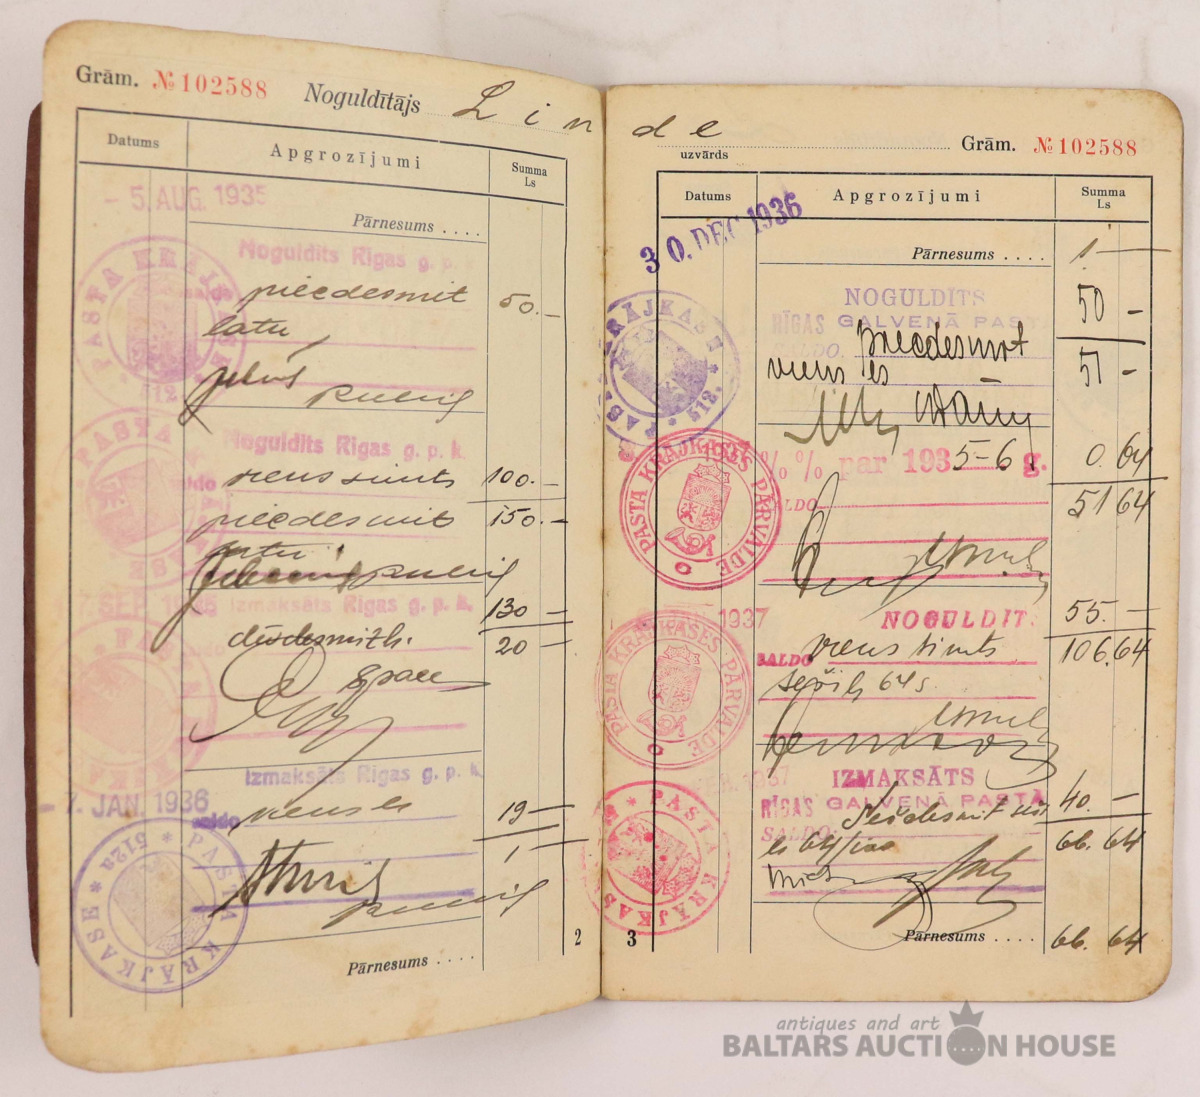 Grām. № 102588 Noguldītājs Linde
Datums Apgrozījumi Summa Ls
- 5. AUG. 1935
Pārnesums . . . .
Noguldīts Rīgas g. p. k.
piecdesmit 50.-
latu
Noguldīts Rīgas g. p. k.
saldo viens simts 100.-
piecdesmits 150.-
latu
7. SEP. 1935 Izmaksāts Rīgas g. p. k. 130 -
saldo divdesmit 20 -
Izmaksāts Rīgas g. p. k.
- 7. JAN. 1936
saldo viens ls 19 -
1
PASTA KRĀJKASE * 512a *
Pārnesums . . . .
2
uzvārds Grām. № 102588
Datums Apgrozījumi Summa Ls
30. DEC 1936
Pārnesums . . . . 1.-
NOGULDĪTS 50 -
RĪGAS GALVENĀ PASTĀ
SALDO. piecdesmit
viens ls 51 -
PASTA KRĀJKASE * 512. *
% % par 1935-6 g. 0.64
SALDO 51 64
PASTA KRĀJKASES PĀRVALDE
1937 NOGULDĪT. 55.-
SALDO viens simts 106.64
seši ls 64 s.
PASTA KRĀJKASES PĀRVALDE
FEB. 1937 IZMAKSĀTS
RĪGAS GALVENĀ PASTĀ 40.-
SALDO: Sešdesmit seši
ls 64 66.64
PASTA KRĀJKASE
3 Pārnesums . . . . 66.64
antiques and art
BALTARS AUCTION HOUSE